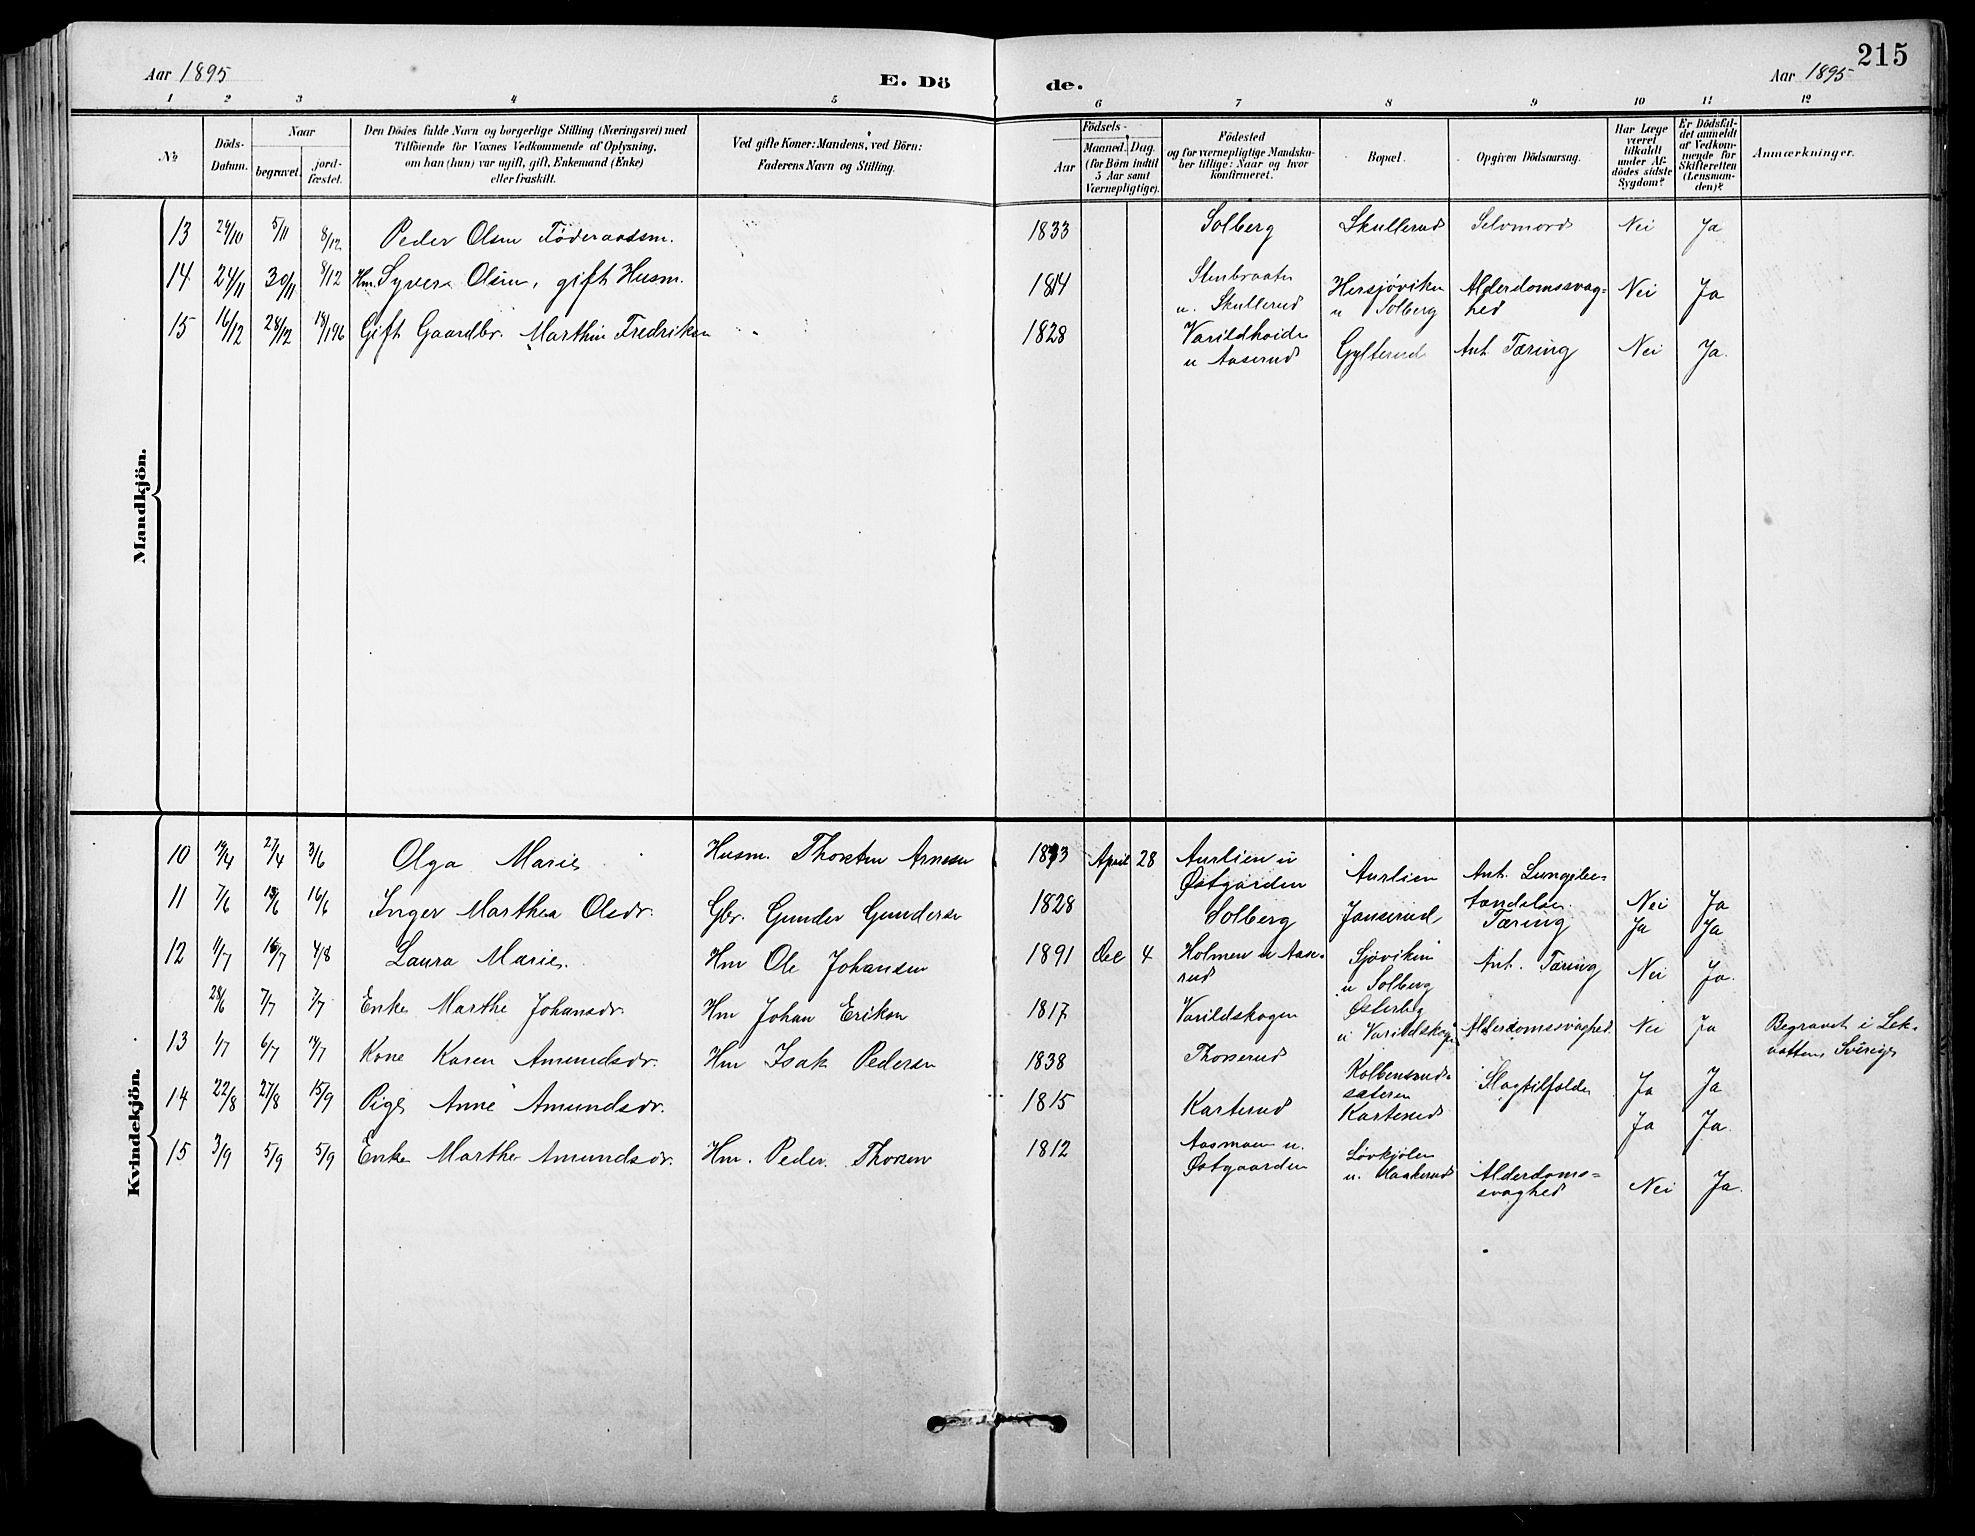 215
Aar 1895
E. Dö
de.
Aar 1895
1 2 3 4 5 6 7 8 9 10 11 12
No
Döds-Datum.
Naar
begravet.
jord-fæstet.
Den Dödes fulde Navn og borgerlige Stilling (Næringsvei) med
Tilföiende for Voxnes Vedkommende af Oplysning,
om han (hun) var ugift, gift, Enkemand (Enke)
eller fraskilt.
Ved gifte Koner: Mandens, ved Börn:
Faderens Navn og Stilling.
Födsels-
Aar
Maaned. Dag.
(for Börn indtil
5 Aar samt
Værnepligtige).
Födested
og for værnepligtige Mandsku-
ber tillige: Naar og hvor
konfirmeret.
Bopæl.
Opgiven Dödsaarsag.
Har Læge
været
tilkaldt
under Af-
dödes sidste
Sygdom?
Er Dödsfal-
det anmeldt
af Vedkom-
mende for
Skifteretten
(Lensman-
den)?
Anmærkninger.
Mandkjön.
13 29/10 5/11 8/12 Peder Olsen Föderaadsm. 1833 Solberg Skullerud Selvmord Nei Ja
14 24/11 30/11 8/12 Hm. Syver Olsen, gift Husm. 1814 Stenbraaten
u. Skullerud Hersjöviken
u Solberg Alderdomssvag=
hed Nei Ja
15 16/12 28/12 18/1 96 Gift Gaardbr. Marthin Fredriksen 1828 Varildheide
u Aaserud Gylterud Ant. Tæring Nei Ja.
Kvindekjön.
10 27/4 3/6 Olga Marie Husm. Thorsten Arnesen April 28 Aurlien u
Østgarden Aurlien Ant. Lungebe=
tændelse. Nei Ja
11 7/6 16/6 Inger Marthea Olsdr. Gbr. Gunder Gundersen 1828 Solberg Janserud Tæring Ja Ja
12 1/7 4/8 Laura Marie. Hm Ole Johansen 1891 Dec 4 Holmen u Aase-
rud Sjöviken
u Solberg Ant. Tæring Nei Ja.
28/6 7/7 7/7 Enke Marthe Johansdr. Hm Johan Eriksen 1817 Varildskogen Østerbeg
u Varildskogen Alderdomssvaghed. Nei Ja Begravet i Lek-
vattens Sverige
13 1/7 6/7 Kone Karen Amundsdr. Hm Isak Pedersen 1838 Thoserud Kolbensrud=
sæteren Slagtilfælde Ja Ja
14 22/8 27/8 15/9 Pige Anne Amundsdr. 1815 Karterud Karterud Ja Ja.
15 3/9 5/9 5/9 Enke Marthe Amundsdr. Hm. Peder Thorsen 1812 Aasmoen u.
Østgaarden Lövkjölen
u. Haakerud Alderdoms=
svaghed Nei Ja.